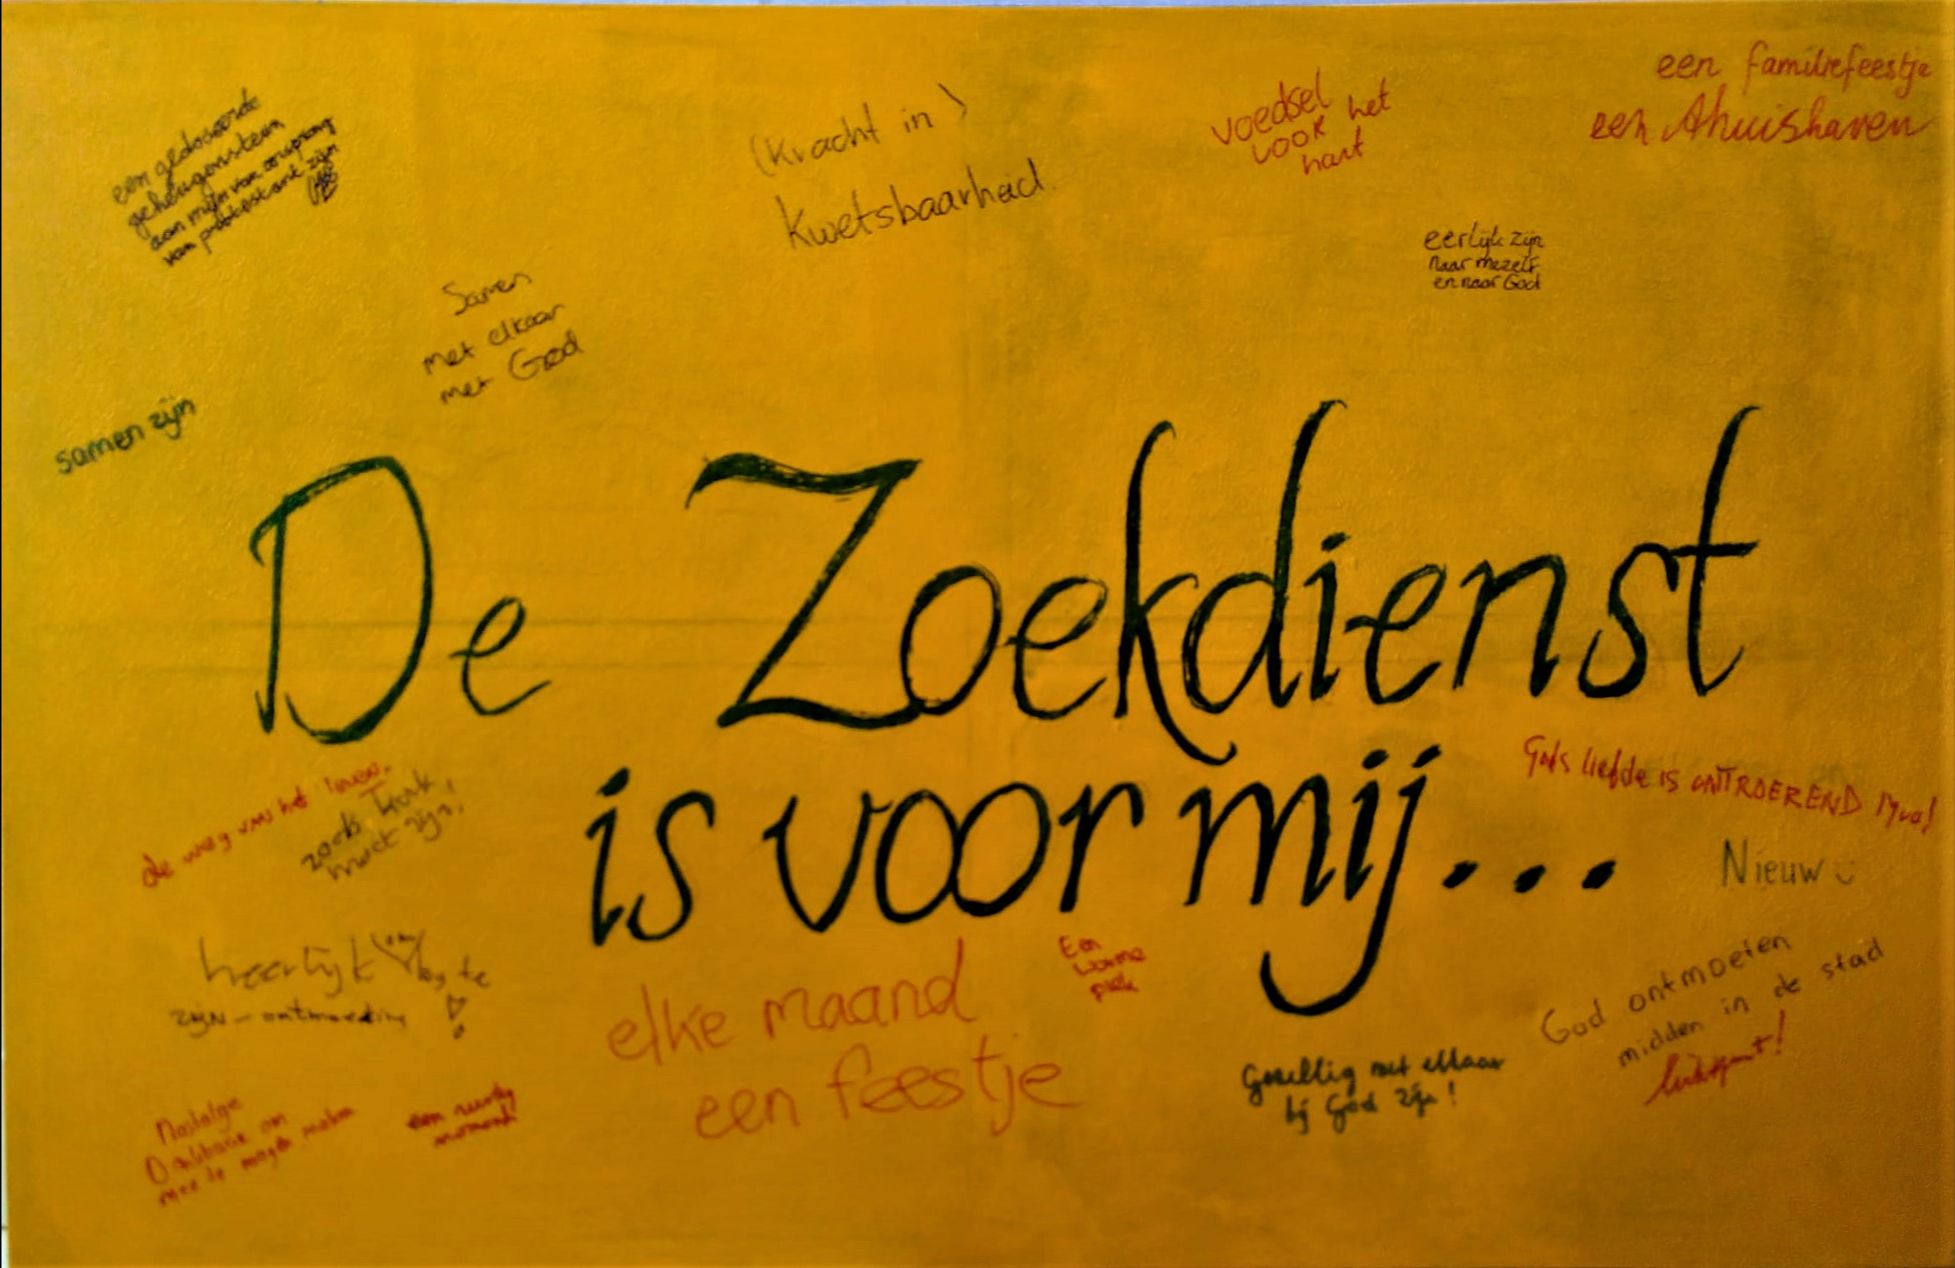 een familiefeestje
een thuishaven
een gedoseerde
geheugensteun
aan mijn van oorsprong
van protestant zijn
(Kracht in)
Kwetsbaarheid
voedsel
voor het
hart
eerlijk zijn
naar mezelf
en naar God
Samen
met elkaar
met God
samen zijn
De Zoekdienst
is voor mij...
de weg van het leven.
zoals kerk
moet zijn!
Gods liefde is ONTROEREND
Nieuw
heerlijk om
bij te
zijn - ontmoeting
!
elke maand
een feestje
Een
warme
plek
God ontmoeten
midden in de stad
Gezellig met elkaar
bij God zijn!
Nostalgie
Dankbaar om
mee te mogen maken
een rustig
moment